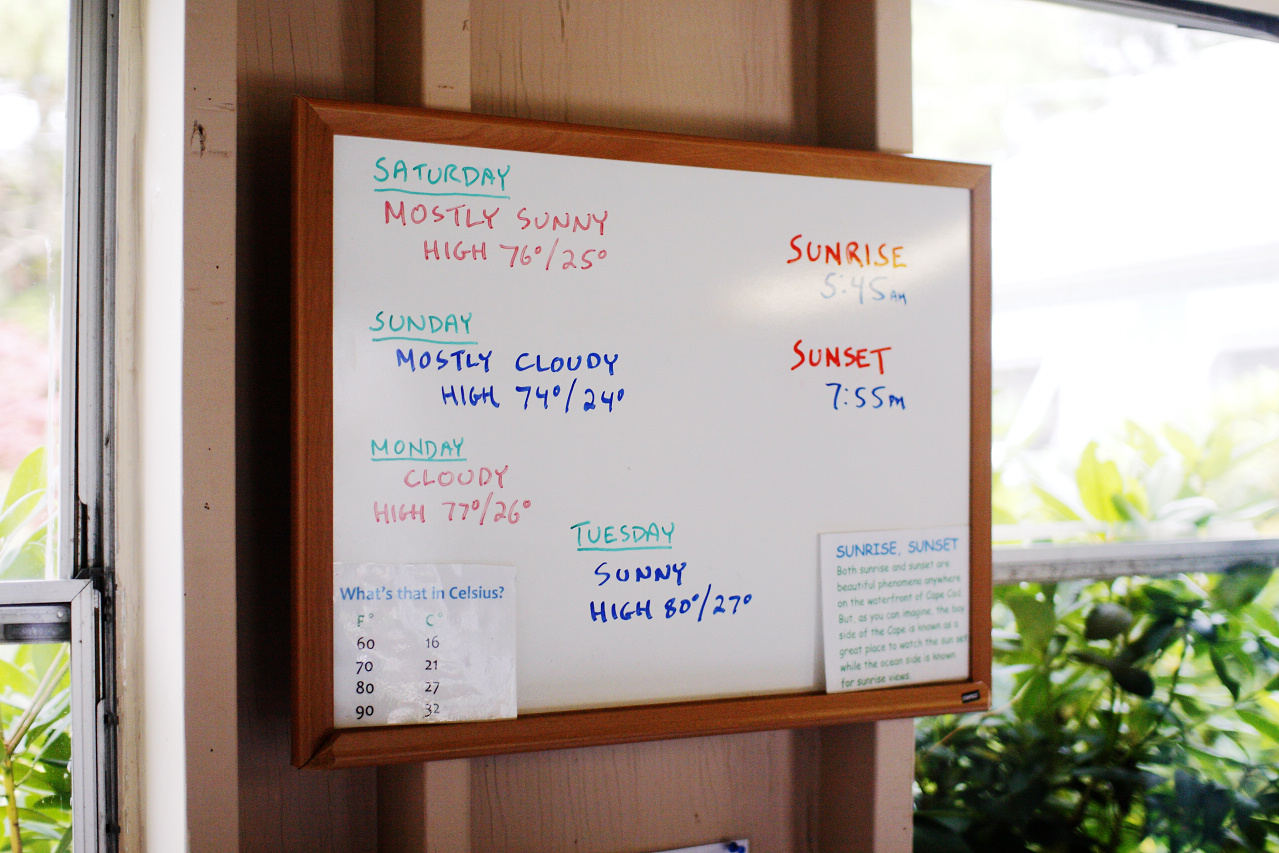 SATURDAY
MOSTLY SUNNY
HIGH 76°/25°
SUNDAY
MOSTLY CLOUDY
HIGH 74°/24°
MONDAY
CLOUDY
HIGH 77°/26°
TUESDAY
SUNNY
HIGH 80°/27°
SUNRISE
5:45AM
SUNSET
7:55PM
What's that in Celsius?
F° C°
60 16
70 21
80 27
90 32
SUNRISE, SUNSET
Both sunrise and sunset are
beautiful phenomena anywhere
on the waterfront of Cape Cod.
But, as you can imagine, the bay
side of the Cape is known as a
great place to watch the sun set
while the ocean side is known
for sunrise views.